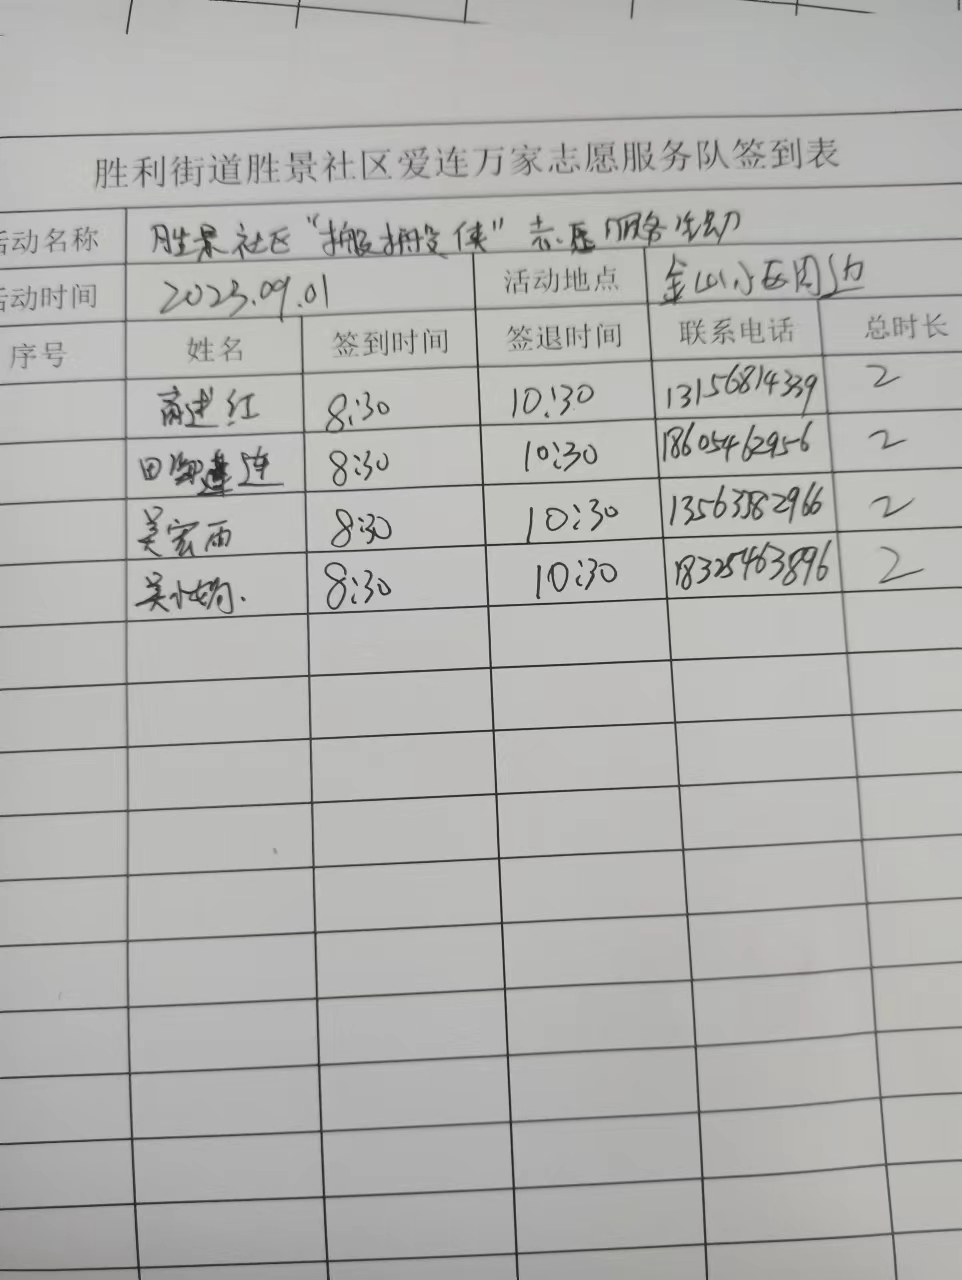 胜利街道胜景社区爱连万家志愿服务队签到表
活动名称 胜景社区“搬拥投侠”志愿服务活动
活动时间 2023.09.01 活动地点 金山小区周边
序号 姓名 签到时间 签退时间 联系电话 总时长
红 8:30 10:30 13156814339 2
田 莲 8:30 10:30 18605462956 2
吴宏雨 8:30 10:30 13563582966 2
吴小娟. 8:30 10:30 18325463896 2